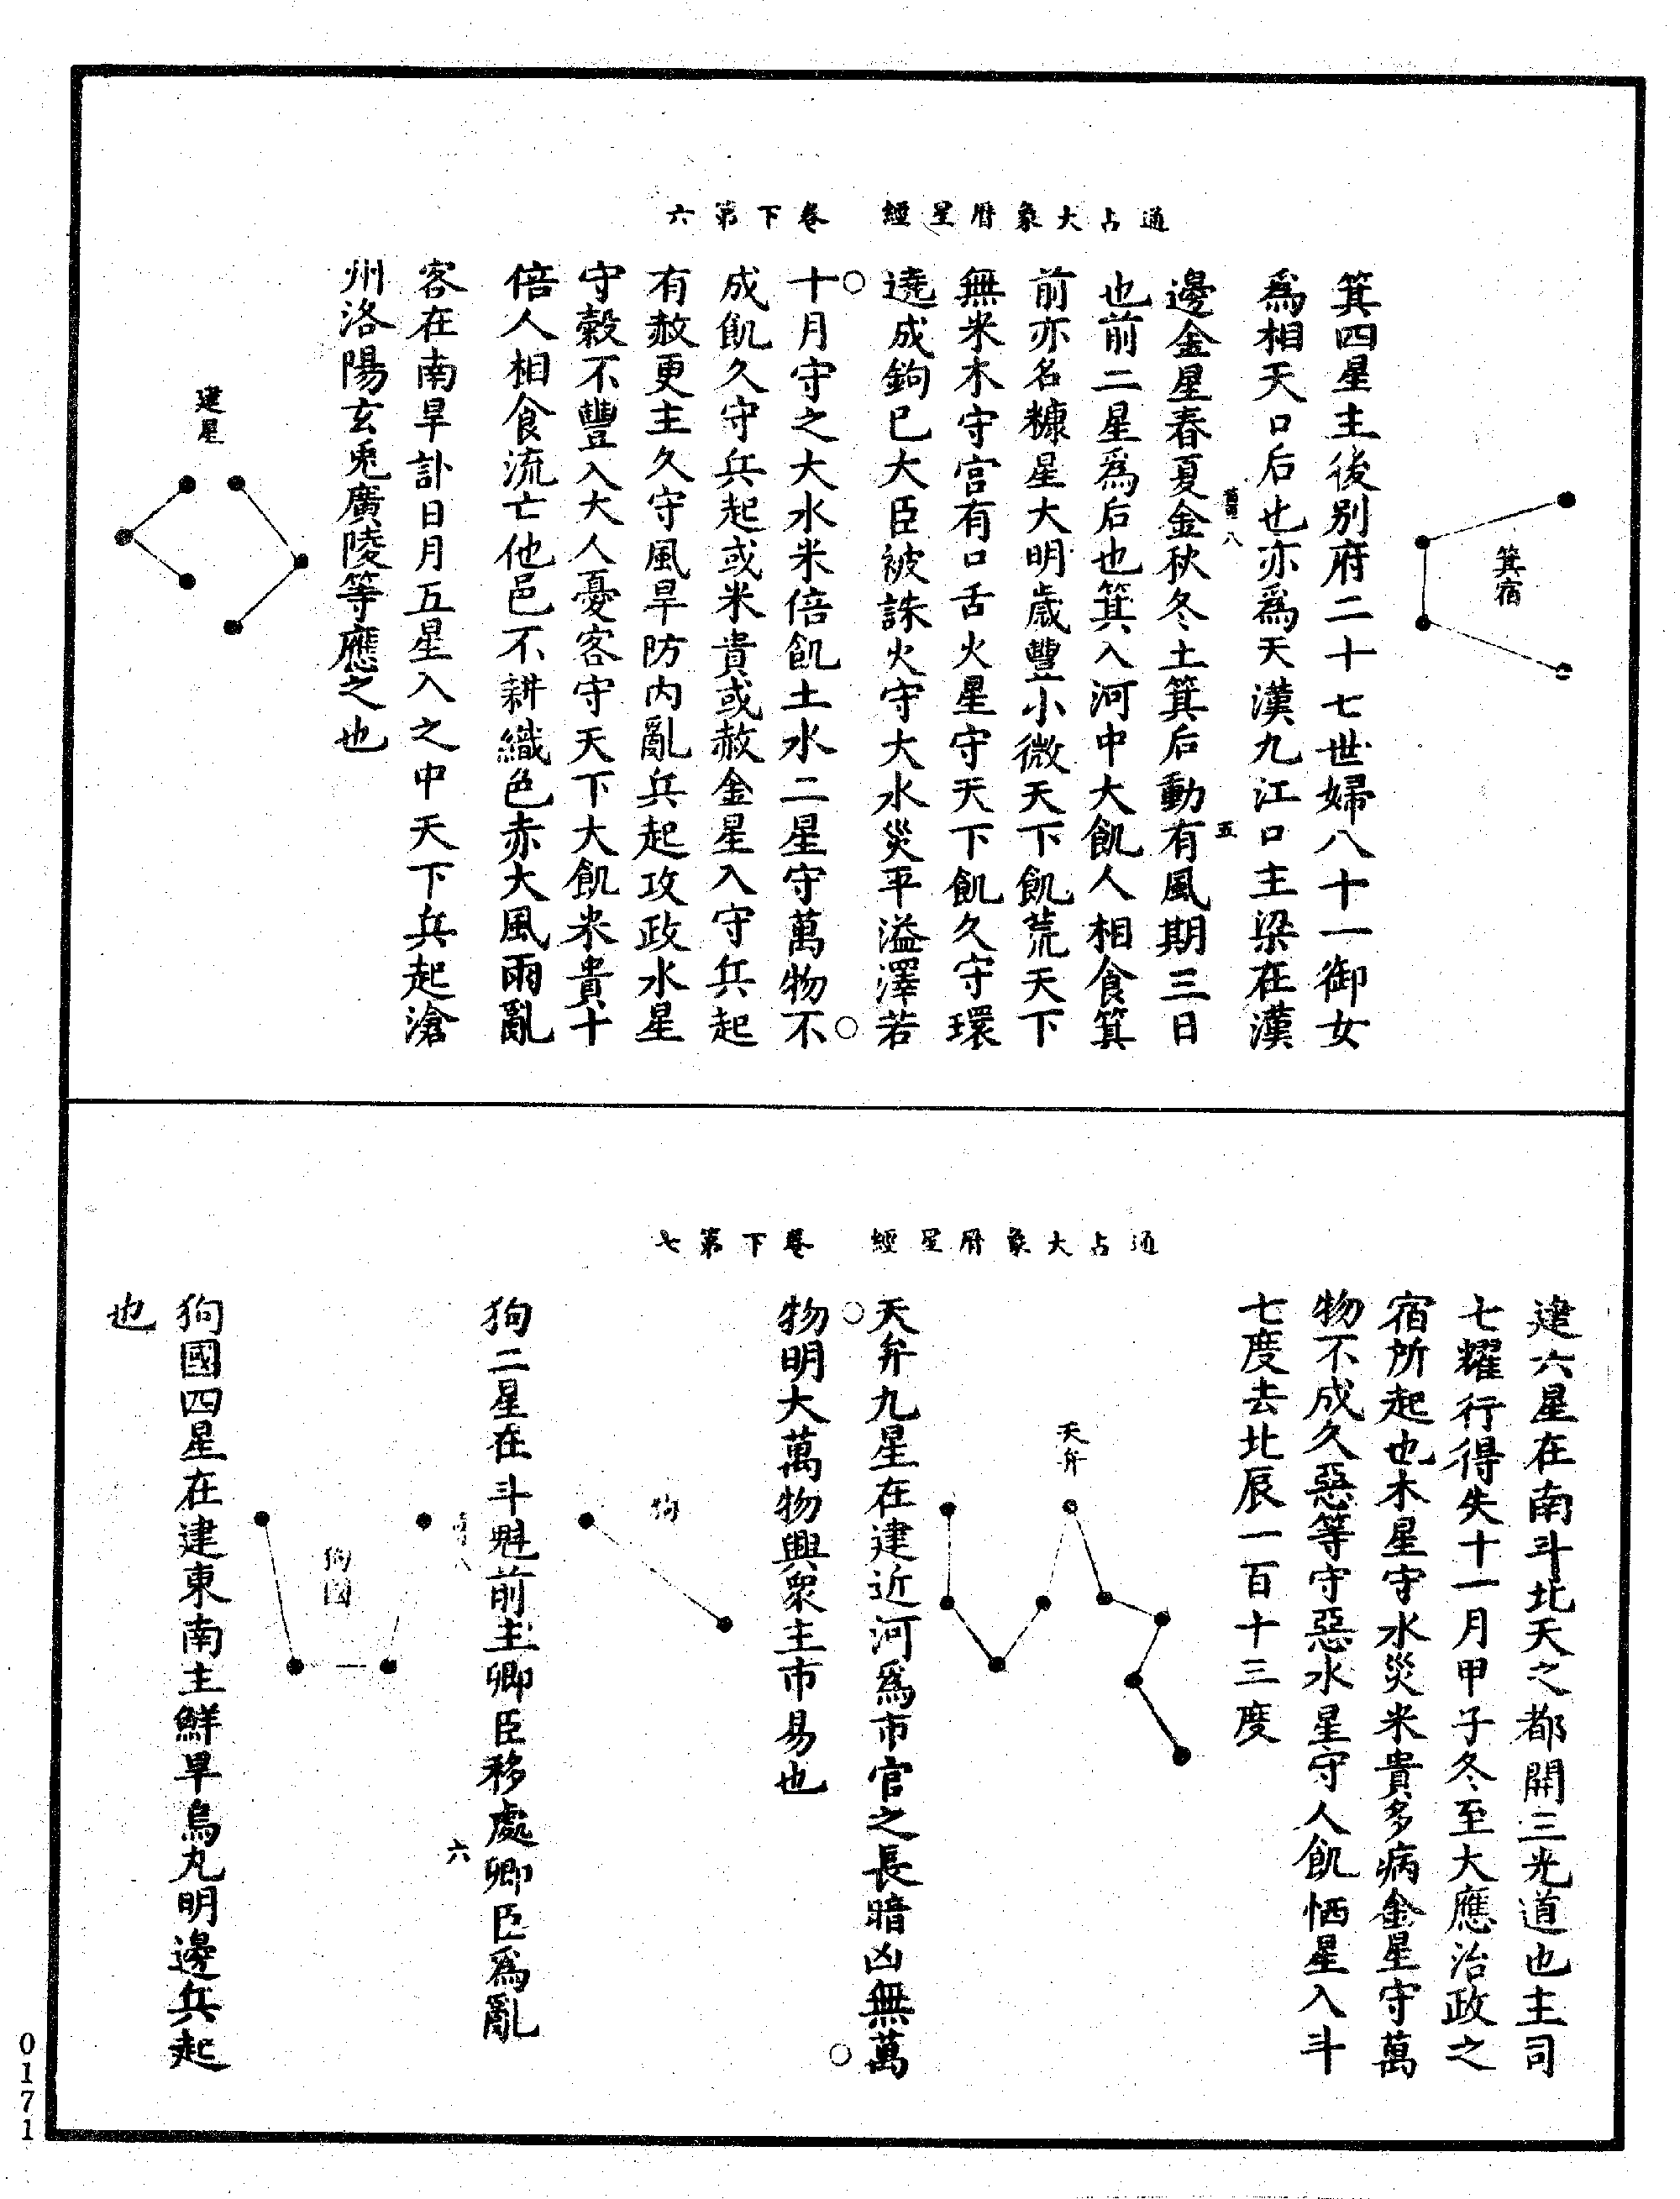 通占大象曆星經　卷下第六
箕宿
箕四星主後別府二十七世婦八十一御女
爲相天口后也亦爲天漢九江口主梁在漢
八
五
邊金星春夏金秋冬土箕后動有風期三日
也前二星爲后也箕入河中大飢人相食箕
前亦名糠星大明歲豐小微天下飢荒天下
無米木守宫有口舌火星守天下飢久守環
遶成鉤巳大臣被誅火守大水災平溢澤若
十月守之大水米倍飢土水二星守萬物不
成飢久守兵起或米貴或赦金星入守兵起
有赦更主久守風旱防内亂兵起攻政水星
守穀不豐入大人憂客守天下大飢米貴十
倍人相食流亡他邑不耕織色赤大風雨亂
客在南旱訃日月五星入之中天下兵起滄
州洛陽玄兎廣陵等應之也
建星
通占大象曆星經　卷下第七
建六星在南斗北天之都開三光道也主司
七耀行得失十一月甲子冬至大應治政之
宿所起也木星守水災米貴多病金星守萬
物不成久惡等守惡水星守人飢恓星入斗
七度去北辰一百十三度
天弁
天弁九星在建近河爲市官之長暗凶無萬
物明大萬物興衆主市易也
狗
狗二星在斗魁前主卿臣移處卿臣爲亂
八
六
狗國
狗國四星在建東南主鮮旱烏丸明邊兵起
也
0171